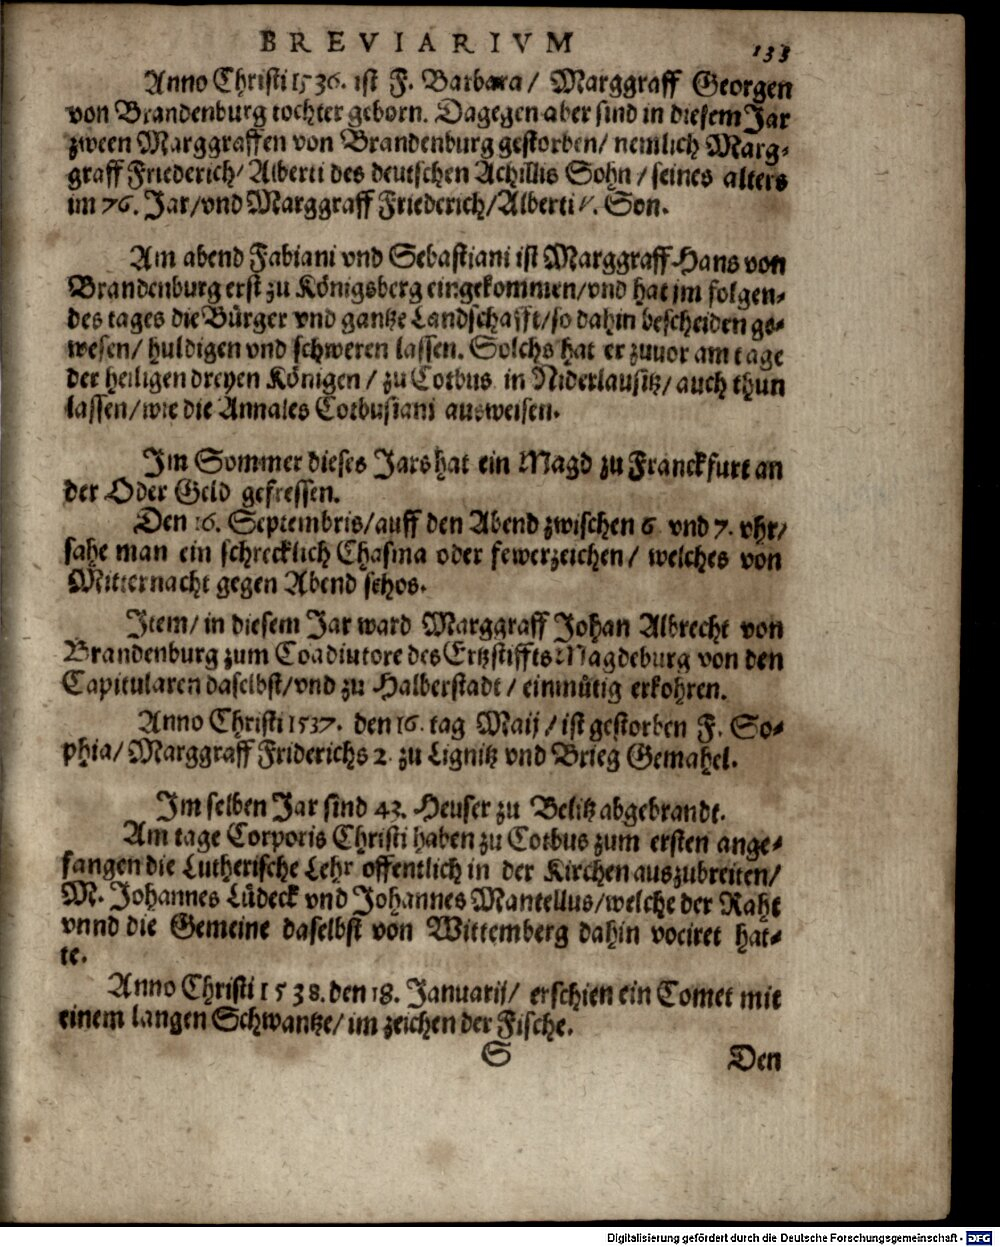 BREVIARIVM 133
Anno Christi 1536. ist F. Barbara / Marggraff Georgen
von Brandenburg tochter geborn. Dagegen aber sind in diesem Jar
zween Marggraffen von Brandenburg gestorben / nemlich Marg-
graff Friederich / Alberti des deutschen Achillis Sohn / seines alters
im 76. Jar / vnd Marggraff Friederich / Alberti Son.
Am abend Fabiani vnd Sebastiani ist Marggraff Hans von
Brandenburg erst zu Königsberg eingekommen / vnd hat im folgen-
des tages die Bürger vnd gantze Landschafft / so dahin bescheiden ge-
wesen / huldigen vnd schweren lassen. Solchs hat er zuuor am tage
der heiligen dreyen Königen / zu Cotbus in Niderlausitz / auch thun
lassen / wie die Annales Cotbusiani ausweisen.
Im Sommer dieses Jars hat ein Magd zu Franckfurt an
der Oder Geld gefressen.
Den 16. Septembris / auff den Abend zwischen 6 vnd 7. vhr /
sahe man ein schrecklich Chasma oder fewerzeichen / welches von
Mitternacht gegen Abend schos.
Item / in diesem Jar ward Marggraff Johan Albrecht von
Brandenburg zum Coadiutore des Ertzstiffts Magdeburg von den
Capitularen daselbst / vnd zu Halberstadt / einmütig erkohren.
Anno Christi 1537. den 16. tag Maij / ist gestorben F. So-
phia / Marggraff Friderichs 2. zu Lignitz vnd Brieg Gemahel.
Im selben Jar sind 43. Heuser zu Belitz abgebrandt.
Am tage Corporis Christi haben zu Cotbus zum ersten ange-
fangen die Lutherische Lehr offentlich in der Kirchen auszubreiten /
M. Johannes Lüdeck vnd Johannes Mantellus / welche der Raht
vnnd die Gemeine daselbst von Wittemberg dahin vociret hat-
te.
Anno Christi 1538. den 18. Januarij / erschien ein Comet mit
einem langen Schwantze / im zeichen der Fische.
S Den
Digitalisierung gefördert durch die Deutsche Forschungsgemeinschaft - DFG